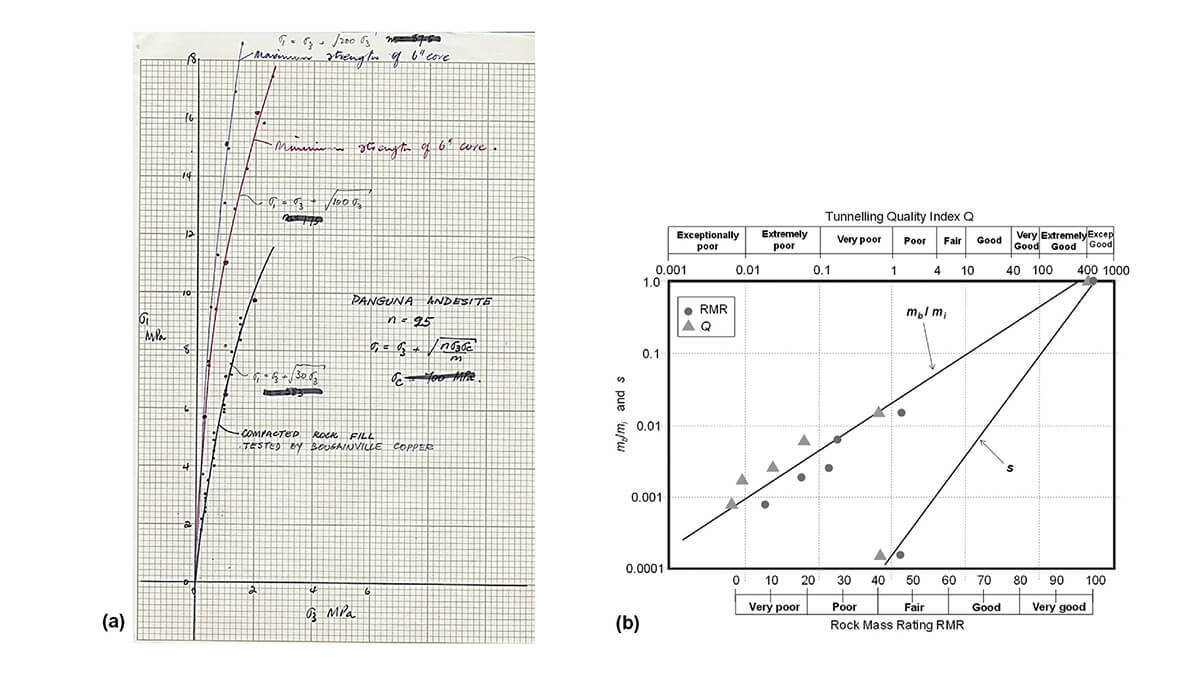 σ₁ = σ₃ + √200 σ₃
Maximum strength of 6" core
18
16
Minimum strength of 6" core.
14
σ₁ = σ₃ + √100 σ₃
12
10
PANGUNA ANDESITE
n = 25
σ₁
MPa
σ₁ = σ₃ + √nσ₃σc
m
8
σ₁ = σ₃ + √30 σ₃
σc = 700 MPa.
6
COMPACTED ROCK FILL
TESTED BY BOUGAINVILLE COPPER
4
2
0 2 4 6
σ₃ MPa
(a)
Tunnelling Quality Index Q
Exceptionally poor
Extremely poor
Very poor
Poor
Fair
Good
Very Good
Extremely Good
Excep Good
0.001 0.01 0.1 1 4 10 40 100 400 1000
1.0
RMR
Q
mb / mi
0.1
mb/mi and s
0.01
s
0.001
0.0001
0 10 20 30 40 50 60 70 80 90 100
Very poor Poor Fair Good Very good
Rock Mass Rating RMR
(b)